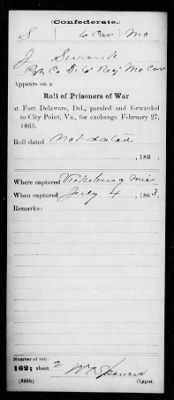 (Confederate.)
S 6 Cav Mo
J Swank
Pvt, Co D. 6' Reg' Mo Cav
Appears on a
Roll of Prisoners of War
at Fort Delaware, Del., paroled and forwarded
to City Point, Va., for exchange February 27,
1865.
Roll dated Not dated
, 186
Where captured Vicksburg Miss
When captured July 4, 1863.
Remarks:
Number of roll:
162; sheet 2
(639b) Copyist.